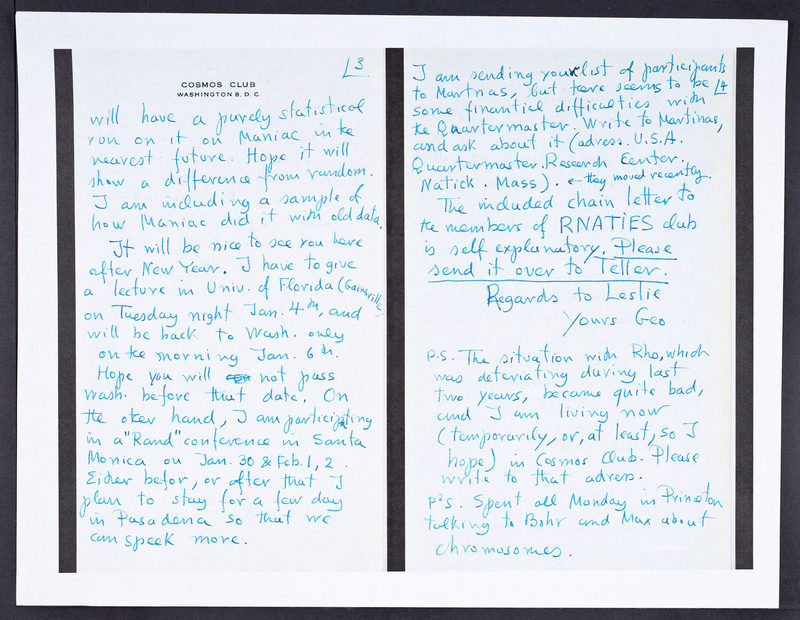 L3
COSMOS CLUB
WASHINGTON 8, D. C.
will have a purely statistical
run on it on Maniac in the
nearest future. Hope it will
show a difference from random.
I am including a sample of
how Maniac did it with old data.
It will be nice to see you here
after New Year. I have to give
a lecture in Univ. of Florida (Gainsville)
on Tuesday night Jan. 4th, and
will be back to Wash. only
on the morning Jan. 6th.
Hope you will not pass
Wash. before that date. On
the oter hand, I am participating
in a "Rand" conference in Santa
Monica on Jan. 30 & Feb. 1, 2.
Eiher befor, or after that I
plan to stay for a few day
in Pasadena so that we
can speek more.
L4
I am sending your list of participants
to Martnas, but tere seems to be
some finantial difficulties with
te Quartermaster. Write to Martinas,
and ask about it (adress. U.S.A.
Quartermaster. Research Center.
Natick. Mass). ← they moved recently.
The included chain letter to
te members of RNATIES club
is self explanatory. Please
send it over to Teller.
Regards to Leslie
Yours Geo
P.S. The situation with Rho, which
was deteriating during last
two years, became quite bad,
and I am living now
(temporarily, or, at least, so I
hope) in Cosmos Club. Please
write to that adress.
P²S. Spent all Monday in Princton
talking to Bohr and Max about
chromosomes.